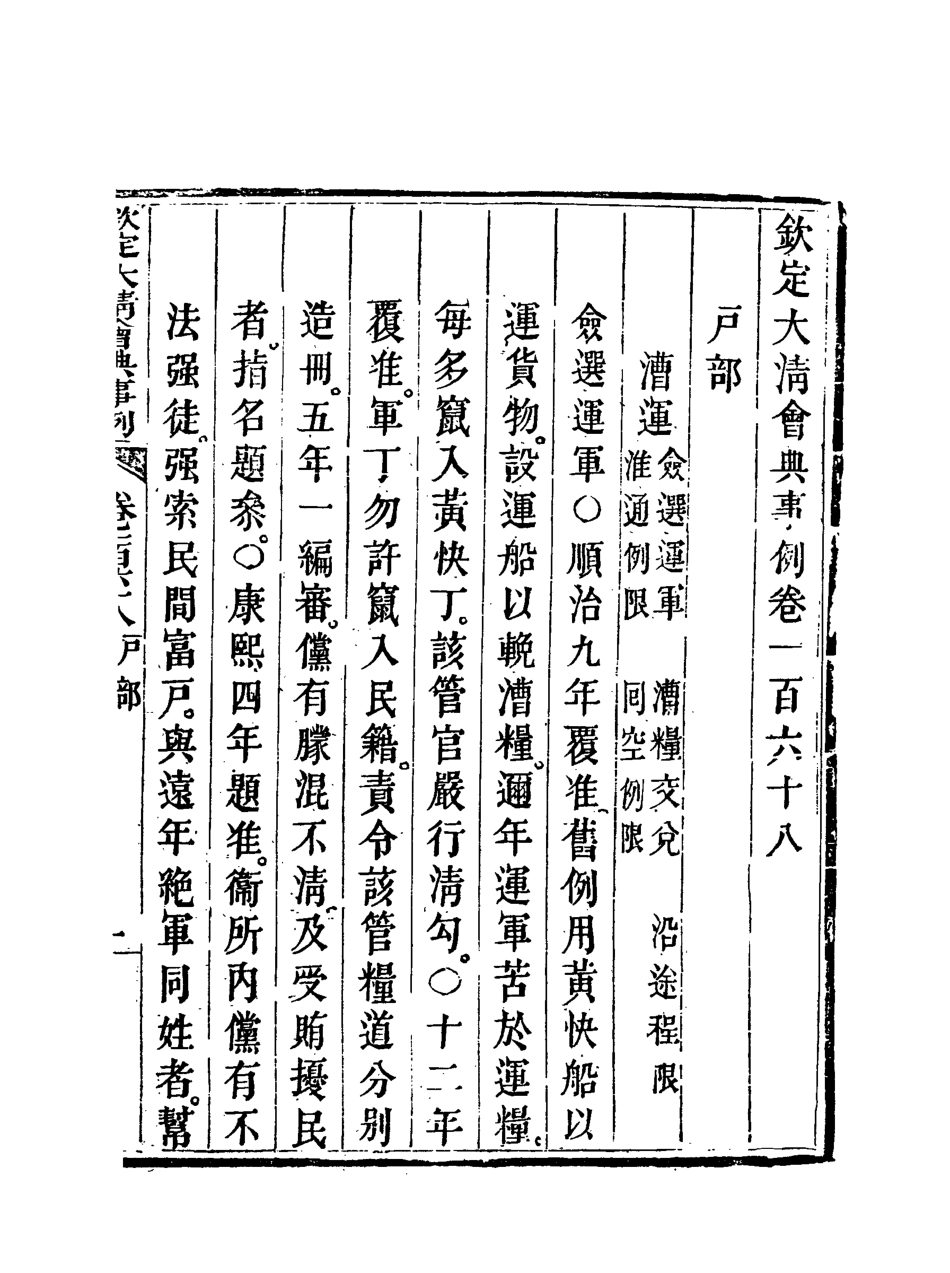 欽定大淸會典事例卷一百六十八
戸部
漕運
僉選運軍　漕糧交兌　沿途程限
淮通例限　囘空例限
僉選運軍○順治九年覆准、舊例用黃快船以
運貨物。設運船以輓漕糧。邇年運軍苦於運糧。
每多竄入黃快丁。該管官嚴行淸勾。○十二年
覆准。軍丁勿許竄入民籍。責令該管糧道分別
造冊。五年一編審。儻有朦混不淸、及受賄擾民
者。指名題參。○康熙四年題准。衞所內儻有不
法强徒。强索民間富戸。與遠年絶軍同姓者。幫
欽定大淸會典事例
卷一百六十八戸部
一